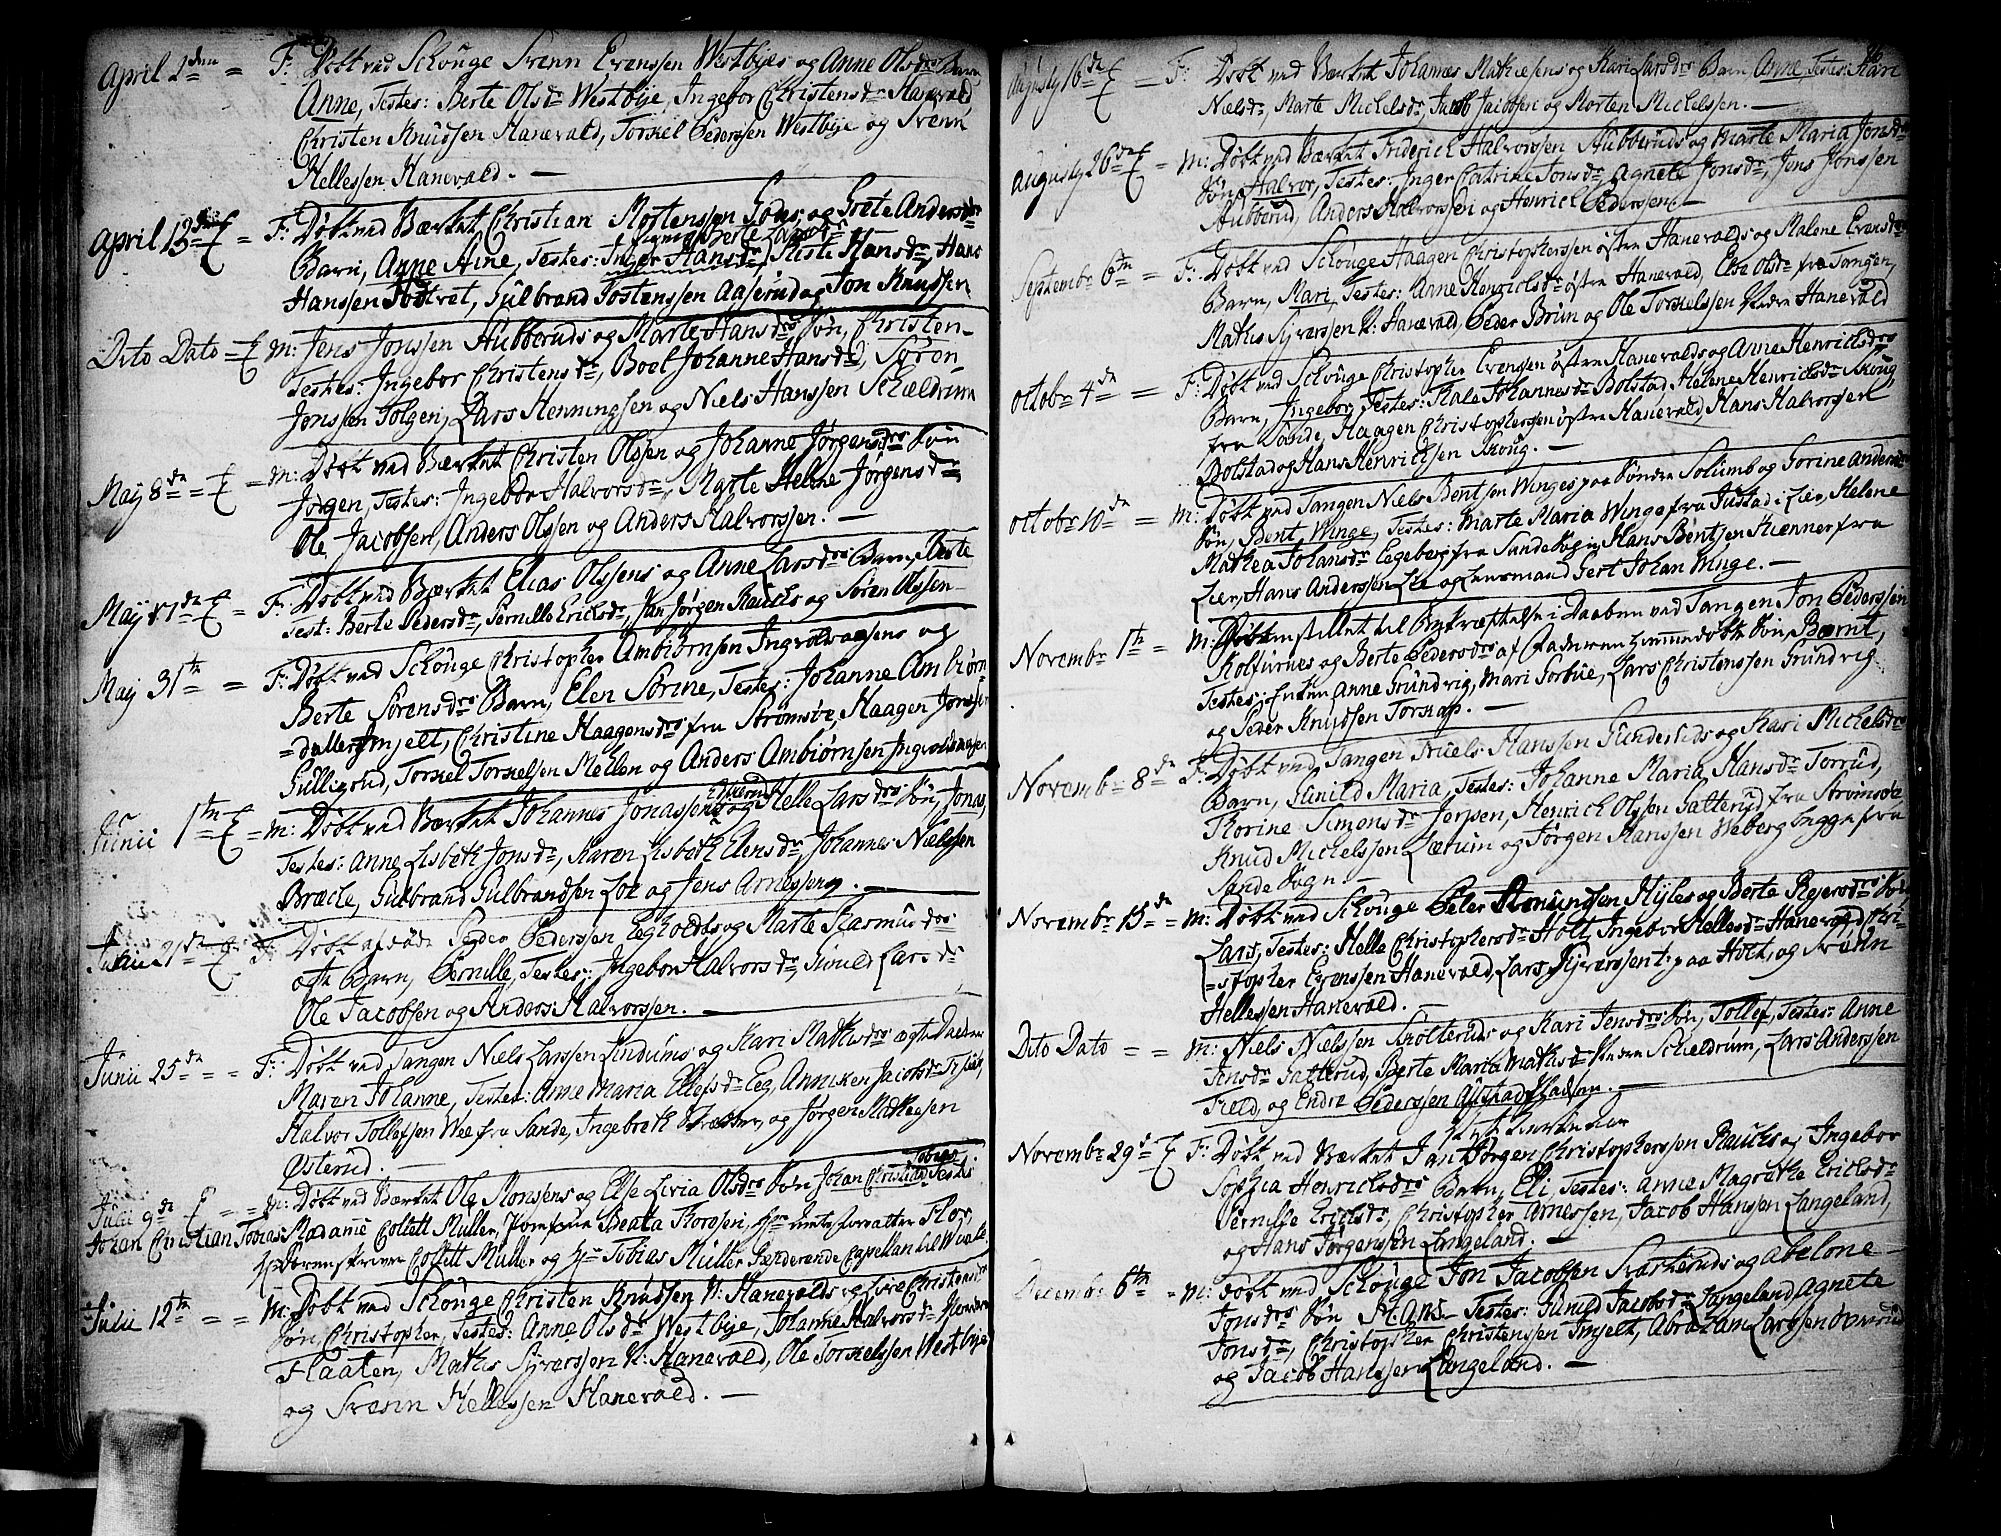 April 2den = F: Døbt ved Schouge Svenn Evenssen Westbyes og Anne Olsdrs Barn
Anne, Testes: Berte Olsdr Westbye, Ingebor Christensdr Hanevald
Christen Knudsen Hanevald, Torkel Pederssen Westbye og Svenn
Hellessen Hanevald. —
April 13de E = F: Døbt ved Værket Christian Mortenssen og Grete Andersdrs
Barn, Anne Aine, Testes: Inger Hansdr, Kiste Hansdr, Hans
Hanssen, Gulbrand Tostenssen Aaserud og Jon Knudssen
Dito Dato = E M: Jens Jonssen Hubberuds og Marte Hansdrs Søn, Christen
Testes: Ingebor Christensdr, Boel Johanne Hansdr, Søren
Jonssen Solgen, Lars Henningssen og Niels Hanssen Schieldrum
May 8de = E = M: Døbt ved Værket Christen Olssen og Johanne Jørgensdrs Søn
Jørgen, Testes: Ingebor Halvorsdr, Marte Helene Jørgensdr,
Ole Jacobsen, Anders Olssen og Anders Halvorssen. —
May 17de E = F: Døbt ved Værket Elias Olssens og Anne Larsdrs Barn, Berte
Test: Berte Pedersdr, Pernille Ericksdr, Jan Jørgen Rauchs og Søren Olssen
May 31te = F: Døbt ved Schouge Christopher Ambiørnsen Ingvoldsagsens og
Berte Sørensdrs Barn, Elen Sørine, Testes: Johanne Ambiørn-
=datter Imjelt, Christine Haagensdr fra Strømsøe, Haagen Jonssen
Gulligrud, Torkel Torkelsen Mellen og Anders Ambiørnsen
Junii 1te E = M: Døbt ved Værket Johannes Jonassens og Helle Larsdrs Søn, Jonas,
Testes: Anne Lisbeth Jonsdr, Karen Lisbeth Elensdr, Johannes Nielssen
Bracle, Gulbrand Gulbrandsen Loe og Jens Arnessen. —
Junii 21de E F: Døbt afdøde Peder Pederssen Egholdts og Marte Rasmusdrs
ægte Barn, Pernille, Testes: Ingebor Halvorsdr, Gunild Larsdr
Ole Jacobsen og Anders Halvorssen. —
Junii 25de = F: Døbt ved Tangen Niels Larssen Lindums og Kari Mathisdrs ægte
Maren Johanne, Testes: Anne Maria Ellefsdr Eeg, Anniken Jacobsdr
Halvor Tollefsen Wee fra Sande, Ingebreth og Jørgen Mathiesen
Østerud. —
Julii 9de E = M: Døbt ved Værket Ole Monsens og Else Livia Olsdrs Søn Johan Christian Tobias Testes:
Johan Christian Tobias Madame Collett Müller, Jomfrue Beata
Sorenskriver Collett Müller og Hr Tobias Müller Capellan til
Julii 12te = = M: Døbt ved Schouge Christen Knudssen N: Hanevalds og Live Christensdrs
Søn, Christopher, Testes: Anne Olsdr Westbye, Johanne Halvorsdr
Flaaten, Mathis Syverssen N: Hanevald, Ole Torkelssen Westbye
og Svenn Hellessen Hanevald. —
86
Augusty 16de E = F: Døbt ved Værket Johannes Mathiesens og Kari Larsdrs Barn, Anne, Testes: Kari
Nielsdr, Marte Michelsdr, Jacob Jacobssen og Morten Michelssen. —
Augusty 26de E = M: Døbt ved Værket Friderich Halvorssen Hubberuds og Marte Maria Jonsdrs
Søn Halvor, Testes: Inger Catrine Jonsdr, Agnete Jonsdr, Jens Jonssen
Hubberud, Anders Halvorssen og Henrich Pederssen. —
Septembr 6te = F: Døbt ved Schouge Haagen Christopherssen østre Hanevalds og Malene Evensdrs
Barn, Mari, Testes: Anne Henrichsdr østre Hanevald, Else Olsdr fra Tangen,
Mathis Syverssen N: Hanevald, Peder Brun og Ole Torkelssen Nedre Hanevald
Octobr 4de = F: Døbt ved Schouge Christopher Evenssen østre Hanevalds og Anne Henrichsdrs
Barn, Ingebor, Testes: Kale Johannesdr Bolstad, Helene Henrichsdr Skoug,
fra Sande, Haagen Christopherssen østre Hanevald, Hans Halvorssen
Bolstad og Hans Henrichsen Skoug. —
Octobr 10de = M: Døbt ved Tangen Niels Bentsen Winges paa Søndre Solumb og Gorine Andersdrs
Søn, Bent Winge, Testes: Marte Maria Winge fra Justad i Lier, Helene
Mathea Johansdr Egeberg fra Sande Sogn, Hans Bentsen Kienner fra
Lier, Hans Anderssen Lie og Lensmand Gert Johan Winge. —
Novembr 1te = M: Fremstillet til Bekræftelse i Daaben ved Tangen Jon Pederssen
Kolturnes og Berte Pedersdrs af Faderen hjemmedøbte Søn Bærnt,
Testes: Enken Anne Grundvig, Mari Sorbye, Lars Christenssen Grundvig
og Peder Knudssen Torskap. —
Novembr 8de F: Døbt ved Tangen Truels Hanssen Gunderlids og Kari Michelsdrs
Barn, Gunild Maria, Testes: Johanne Maria Hansdr Torrud,
Korine Simonsdr Jerpen, Henrich Olssen Satterud fra Strømsøe,
Knud Michelssen Lærum og Jørgen Hanssen Weberg begge fra
Sande Sogn. —
Novembr 15de = M: Døbt ved Schouge Peter Amundssen Hyles og Berte Rejersdrs Søn
Lars, Testes: Helle Christophersdr Holt, Ingebor Hellesdr Hanevald Chri-
=stopher Evenssen Hanevald, Lars Syverssen paa Holt, og Svenn
Hellessen Hanevald. —
Dito Dato = = M: Niels Nielssen Skotteruds og Kari Jensdrs Søn, Tollef, Testes: Anne
Jensdr Satterud, Berte Maria Mathisdr Nedre Schieldrum, Lars Anderssen
Field, og Endre Pederssen. —
Novembr 29de E F: Døbt ved Værket Jan Jørgen Christopherssen Rauchs og Ingebor
Sophia Henrichsdrs Barn, Eli, Testes: Anne Magrethe Erichsdr
Pernille Erichsdr, Christopher Arnessen, Jacob Hanssen Langeland,
og Hans Jørgenssen Langeland. —
Decembr 6te = M: Døbt ved Schouge Jon Jacobssen Svarteruds og Abelone
Jonsdrs Søn Hans Testes: Gunild Jacobsdr Langeland Agnete
Jonsdr, Christopher Christenssen Imjelt, Abraham Larssen
og Jacob Hanssen Langeland. —